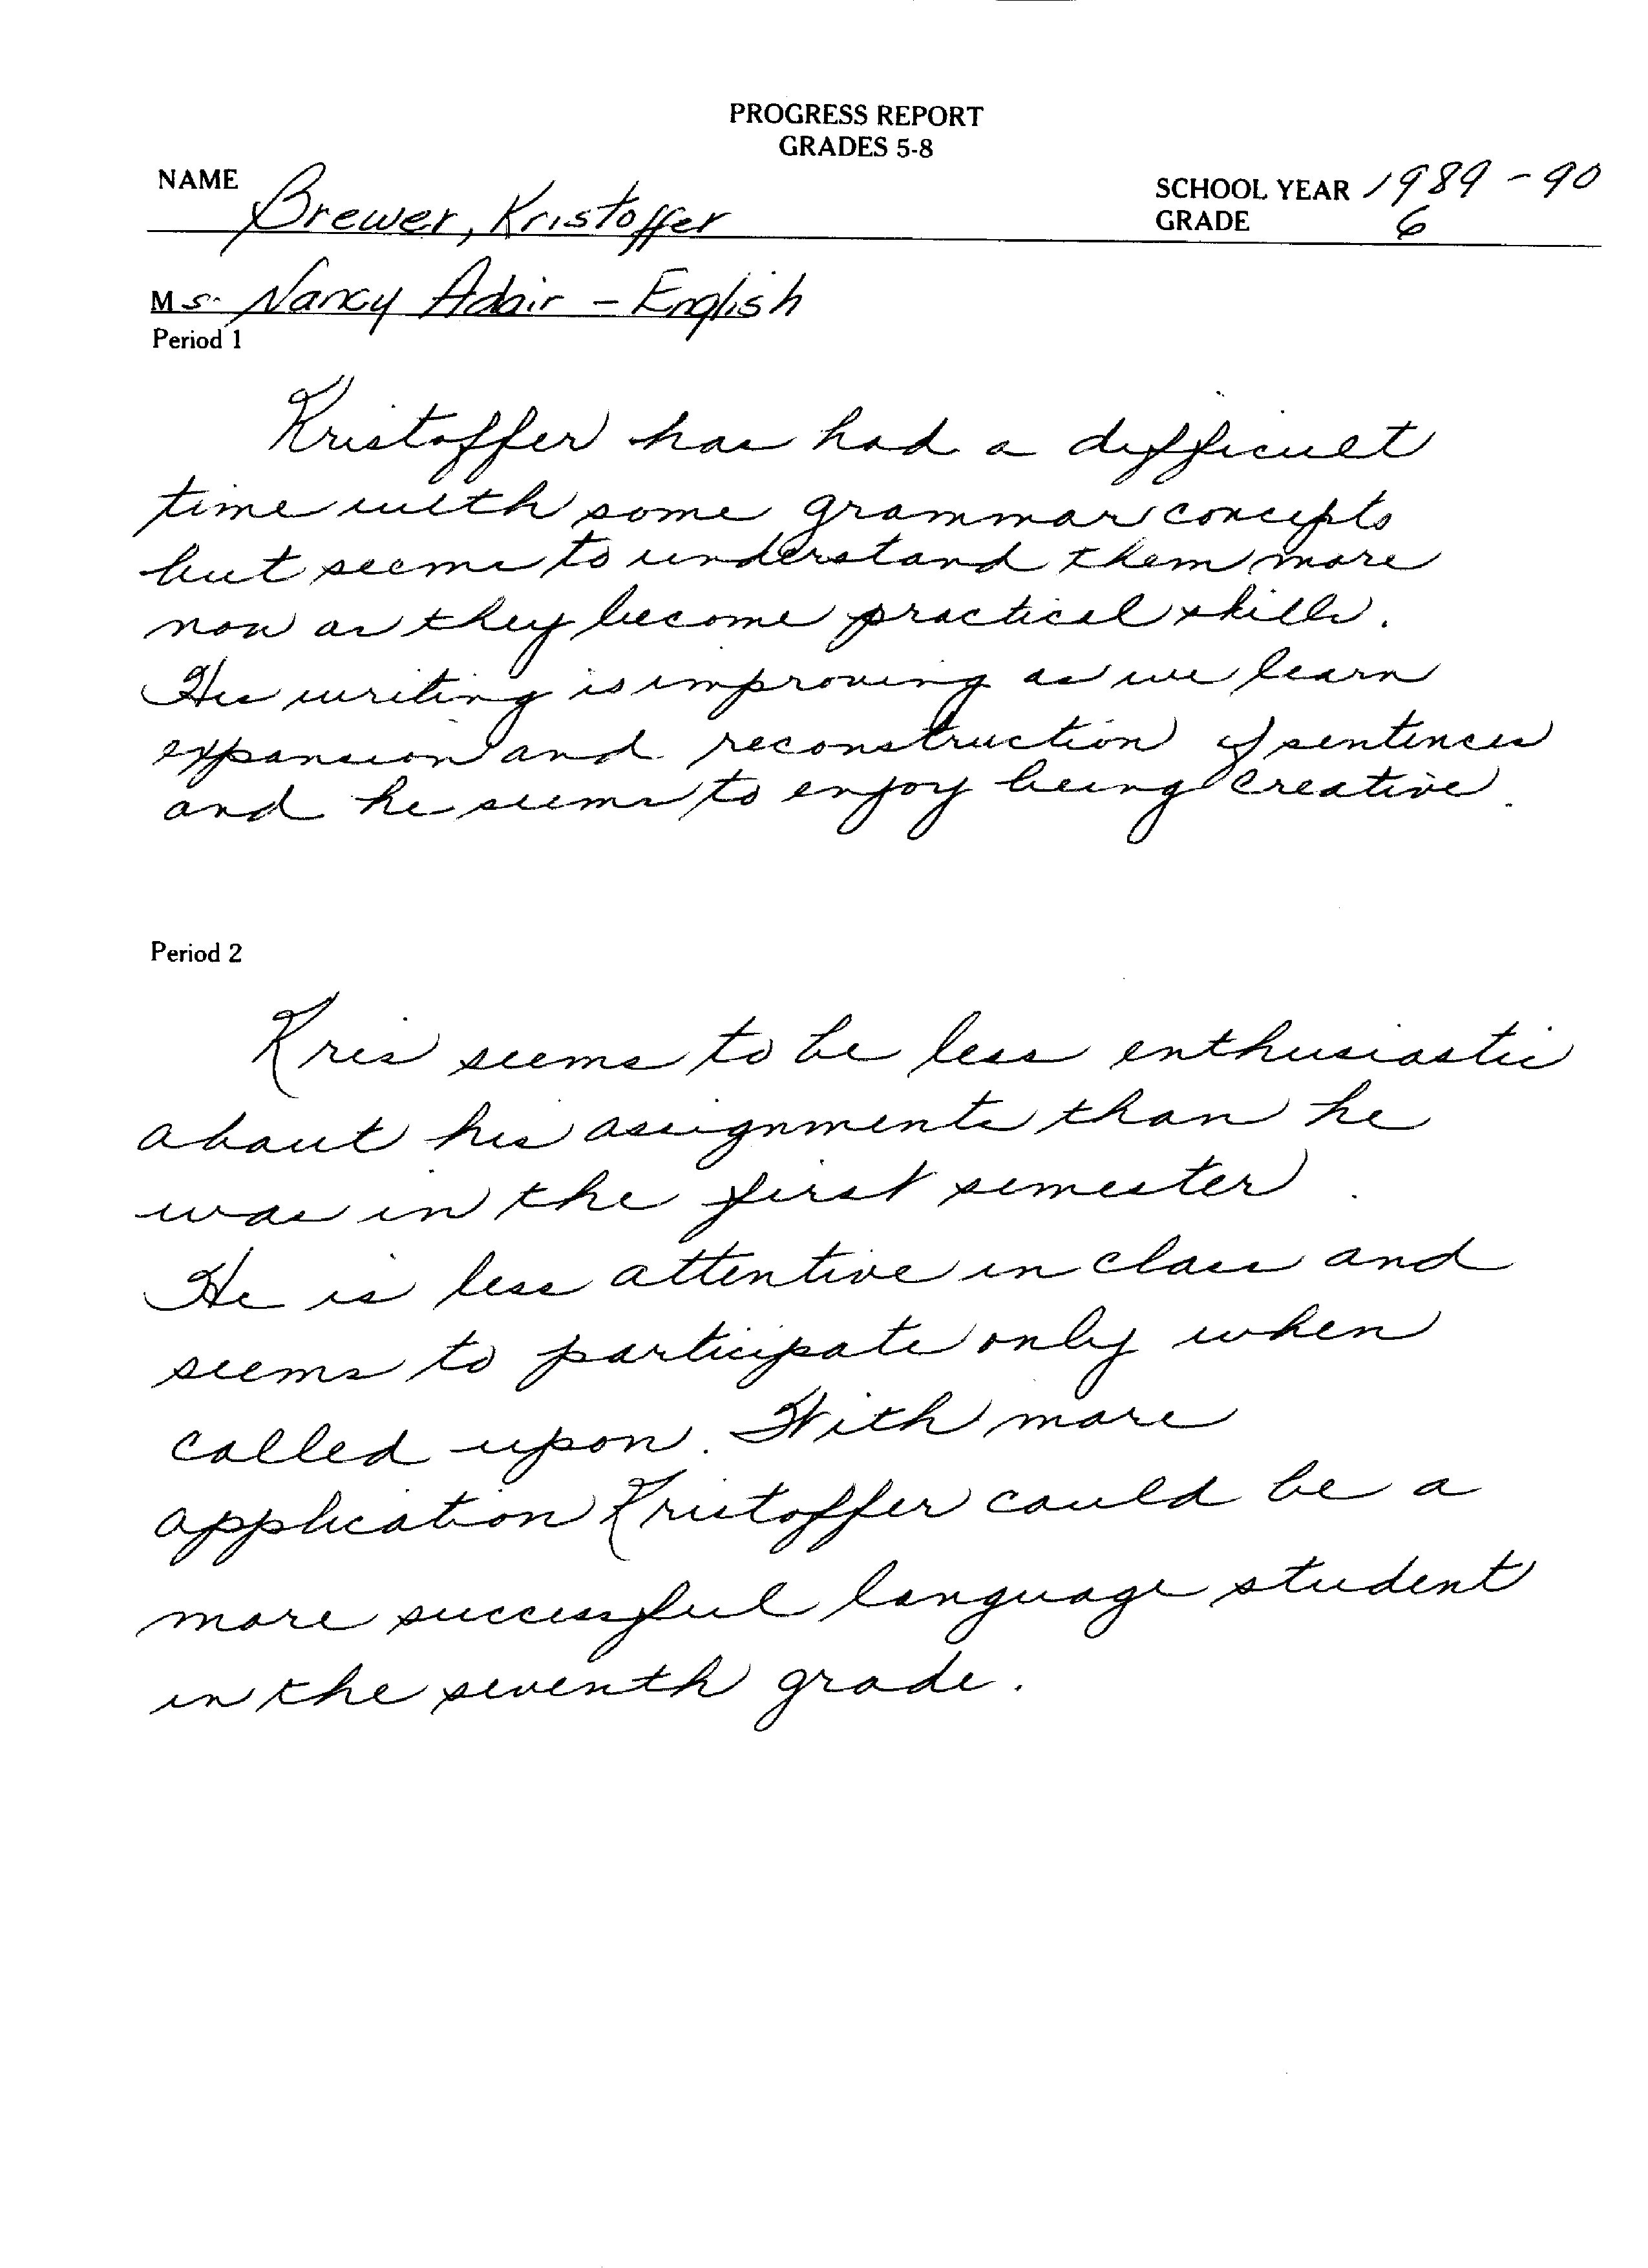 PROGRESS REPORT
GRADES 5-8
NAME Brewer, Kristoffer
SCHOOL YEAR 1989-90
GRADE 6
Ms. Nancy Adair - English
Period 1
Kristoffer has had a difficult
time with some grammar concepts
but seems to understand them more
now as they become practical skills.
His writing is improving as we learn
expansion and reconstruction of sentences
and he seems to enjoy being creative.
Period 2
Kris seems to be less enthusiastic
about his assignments than he
was in the first semester.
He is less attentive in class and
seems to participate only when
called upon. With more
application Kristoffer could be a
more successful language student
in the seventh grade.